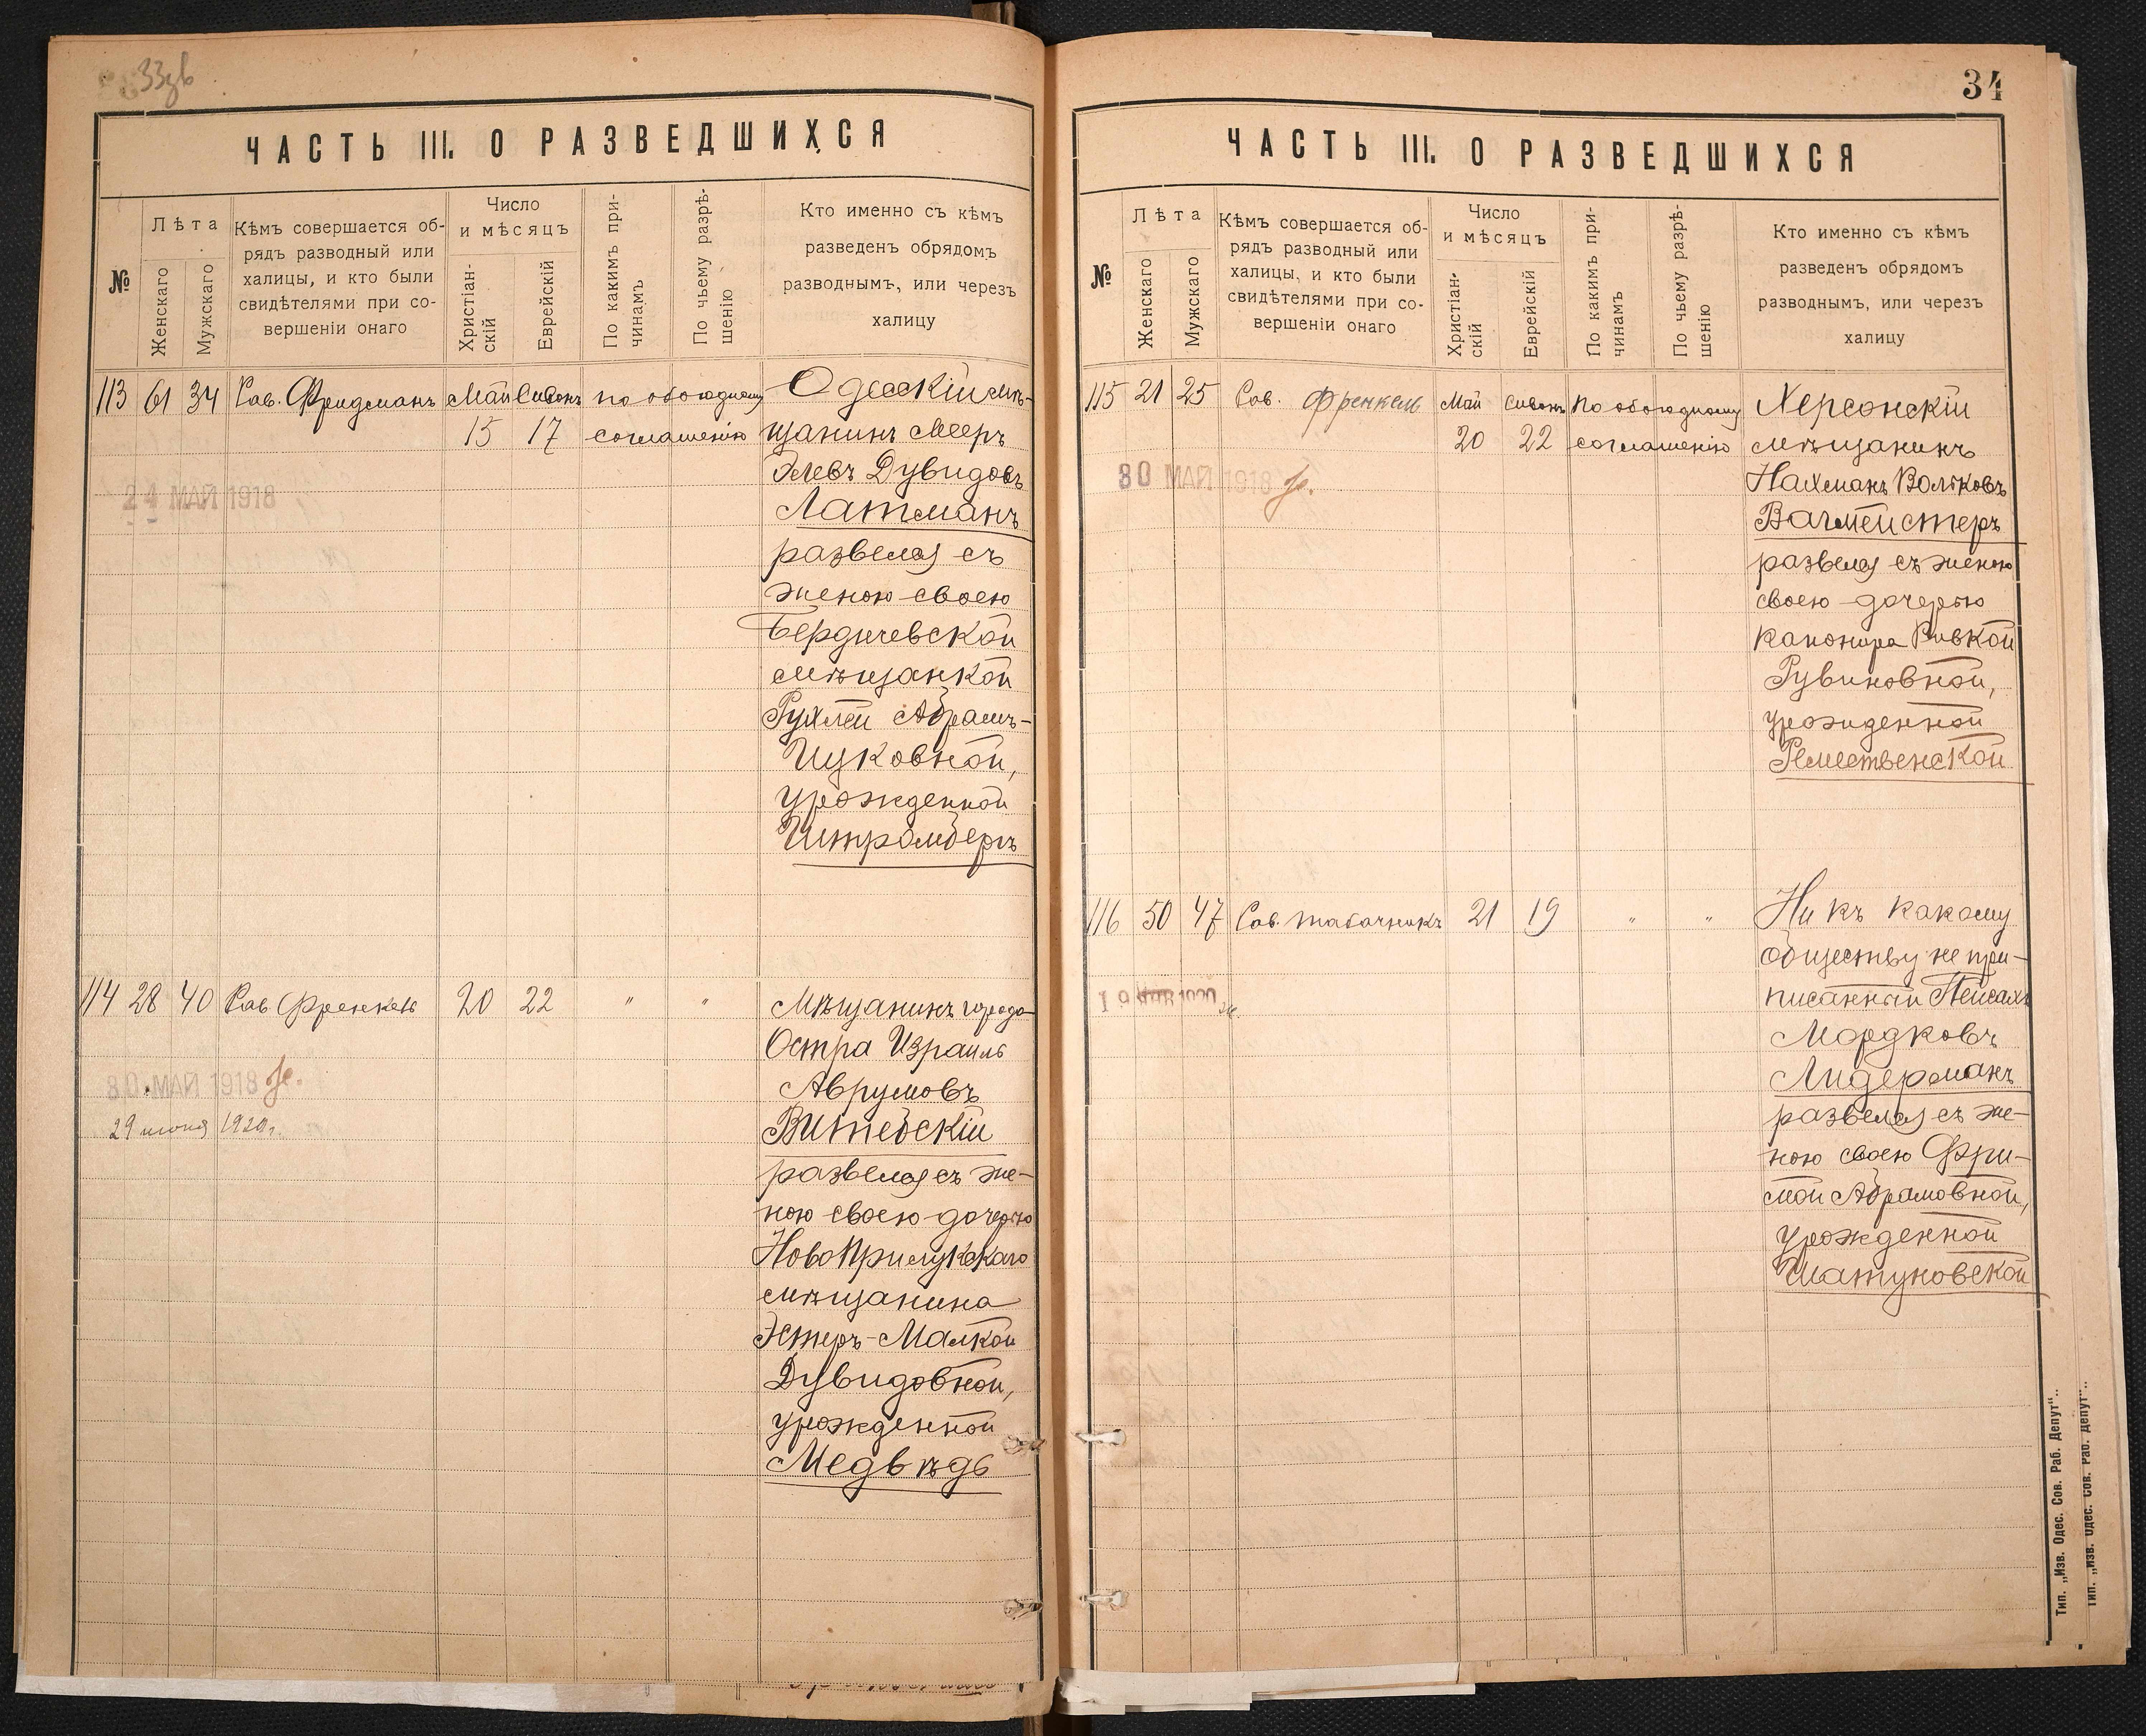 33зв
ЧАСТЬ III. О РАЗВЕДШИХСЯ
№
Лѣта
Женскаго
Мужскаго
Кѣмъ совершается об-
рядъ разводный или
халицы, и кто были
свидѣтелями при со-
вершеніи онаго
Число
и мѣсяцъ
Христіан-
скій
Еврейскій
По какимъ при-
чинамъ
По чьему разрѣ-
шенію
Кто именно съ кѣмъ
разведенъ обрядомъ
разводнымъ, или черезъ
халицу
113 61 34 Рав. Фридманъ Май Сивонъ по обоюдному Одесскій мѣ-
15 17 соглашенію щанинъ Мееръ
Элевъ Дувидовъ
24 МАЙ 1918
Латманъ
развелся съ
женою своею
Бердичевской
мѣщанкой
Рухлей Абрамъ-
Ицковной,
урожденной
Штромбергъ
114 28 40 Рав Френкель 20 22 " " Мѣщанинъ города
Остра Израиль
30 МАЙ 1918
Аврумовъ
29 июня 1920г.
Витебскій
развелся съ же-
ною своею дочерью
НовоПрилукскаго
мѣщанина
Эстеръ-Малкой
Дувидовной,
урожденной
Медвѣдь
34
ЧАСТЬ III. О РАЗВЕДШИХСЯ
№
Лѣта
Женскаго
Мужскаго
Кѣмъ совершается об-
рядъ разводный или
халицы, и кто были
свидѣтелями при со-
вершеніи онаго
Число
и мѣсяцъ
Христіан-
скій
Еврейскій
По какимъ при-
чинамъ
По чьему разрѣ-
шенію
Кто именно съ кѣмъ
разведенъ обрядомъ
разводнымъ, или черезъ
халицу
115 21 25 Рав. Френкель Май Сивонъ по обоюдному Херсонскій
20 22 соглашенію мѣщанинъ
30 МАЙ 1918
Нахманъ Вольковъ
Вагмейстеръ
развелся съ женою
своею дочерью
канонира Ривкой
Рувиновной,
урожденной
Ремественской
116 50 47 Рав. Табачникъ 21 19 " " Ни къ какому
обществу не при-
писанный Пейсахъ
19 1920
Мордковъ
Лидерманъ
развелся съ же-
ною своею Фри-
мой Абрамовной,
урожденной
Шатуновской
Тип. „Изв. Одес. Сов. Раб. Депут“..
Тип. „Изв. Одес. Сов. Раб. Депут“..